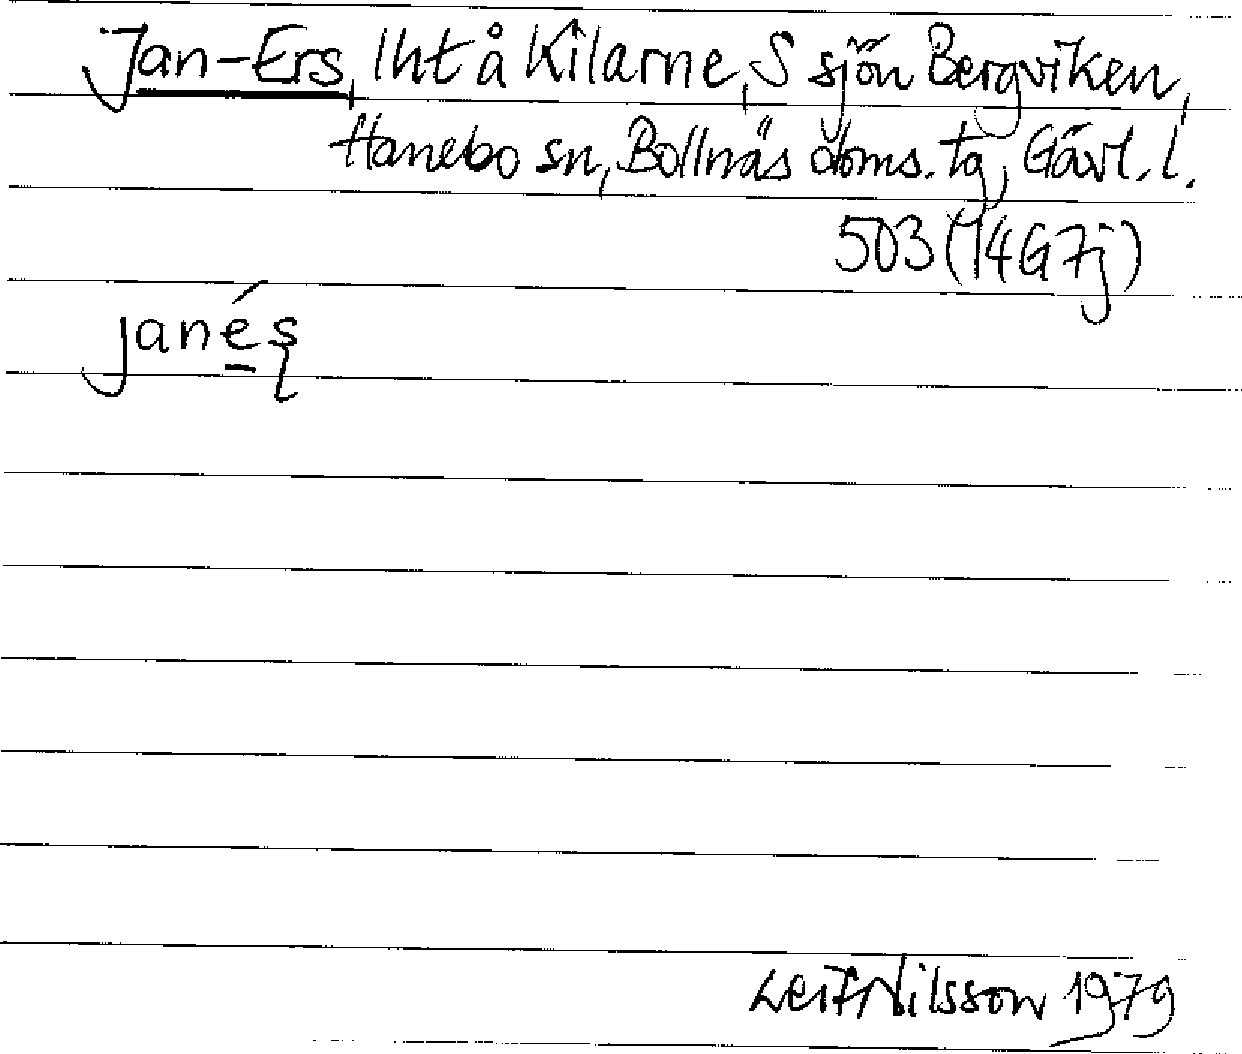 Jan-Ers, lht å Kilarne, S sjön Bergviken,
Hanebo sn, Bollnäs doms. tg, Gävl. l.
503 (14G7j)
janés̨
Leif Nilsson 1979